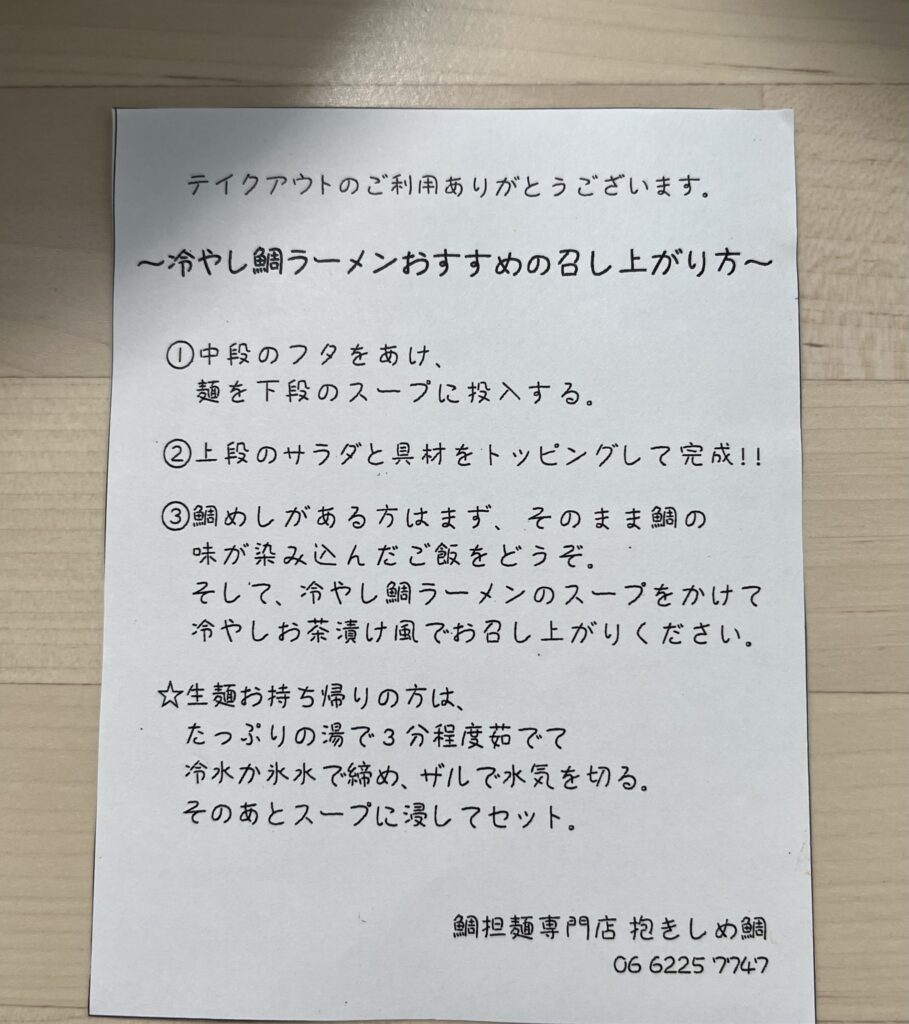 テイクアウトのご利用ありがとうございます。
～冷やし鯛ラーメンおすすめの召し上がり方～
①中段のフタをあけ、
麺を下段のスープに投入する。
②上段のサラダと具材をトッピングして完成!!
③鯛めしがある方はまず、そのまま鯛の
味が染み込んだご飯をどうぞ。
そして、冷やし鯛ラーメンのスープをかけて
冷やしお茶漬け風でお召し上がりください。
☆生麺お持ち帰りの方は、
たっぷりの湯で3分程度茹でて
冷水か氷水で締め、ザルで水気を切る。
そのあとスープに浸してセット。
鯛担麺専門店 抱きしめ鯛
06 6225 7747